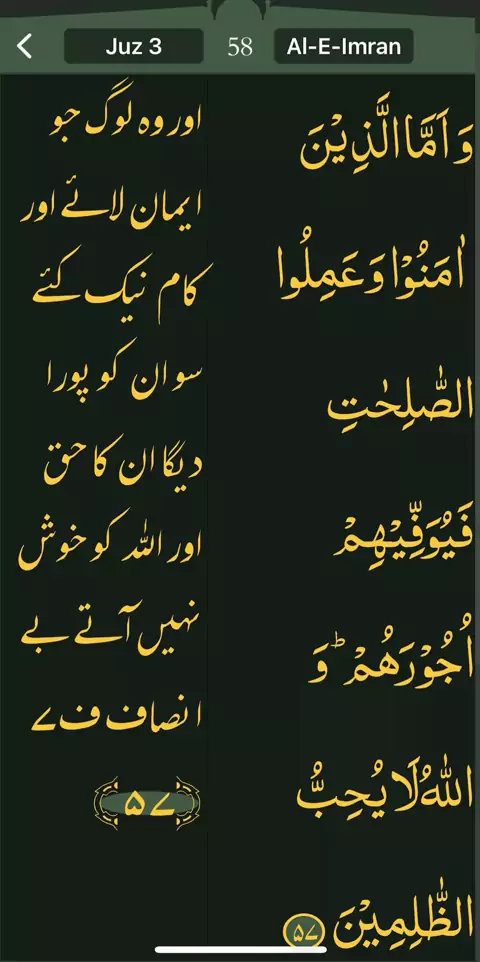 Juz 3
58
Al-E-Imran
وَ اَمَّا الَّذِيْنَ
اٰمَنُوْا وَ عَمِلُوا
الصّٰلِحٰتِ
فَيُوَفِّيْهِمْ
اُجُوْرَهُمْ ؕ وَ
اللّٰهُ لَا يُحِبُّ
الظّٰلِمِيْنَ ۵۷
اور وہ لوگ جو
ایمان لائے اور
کام نیک کئے
سو ان کو پورا
دیگا ان کا حق
اور اللہ کو خوش
نہیں آتے بے
انصاف ف ے
۵۷